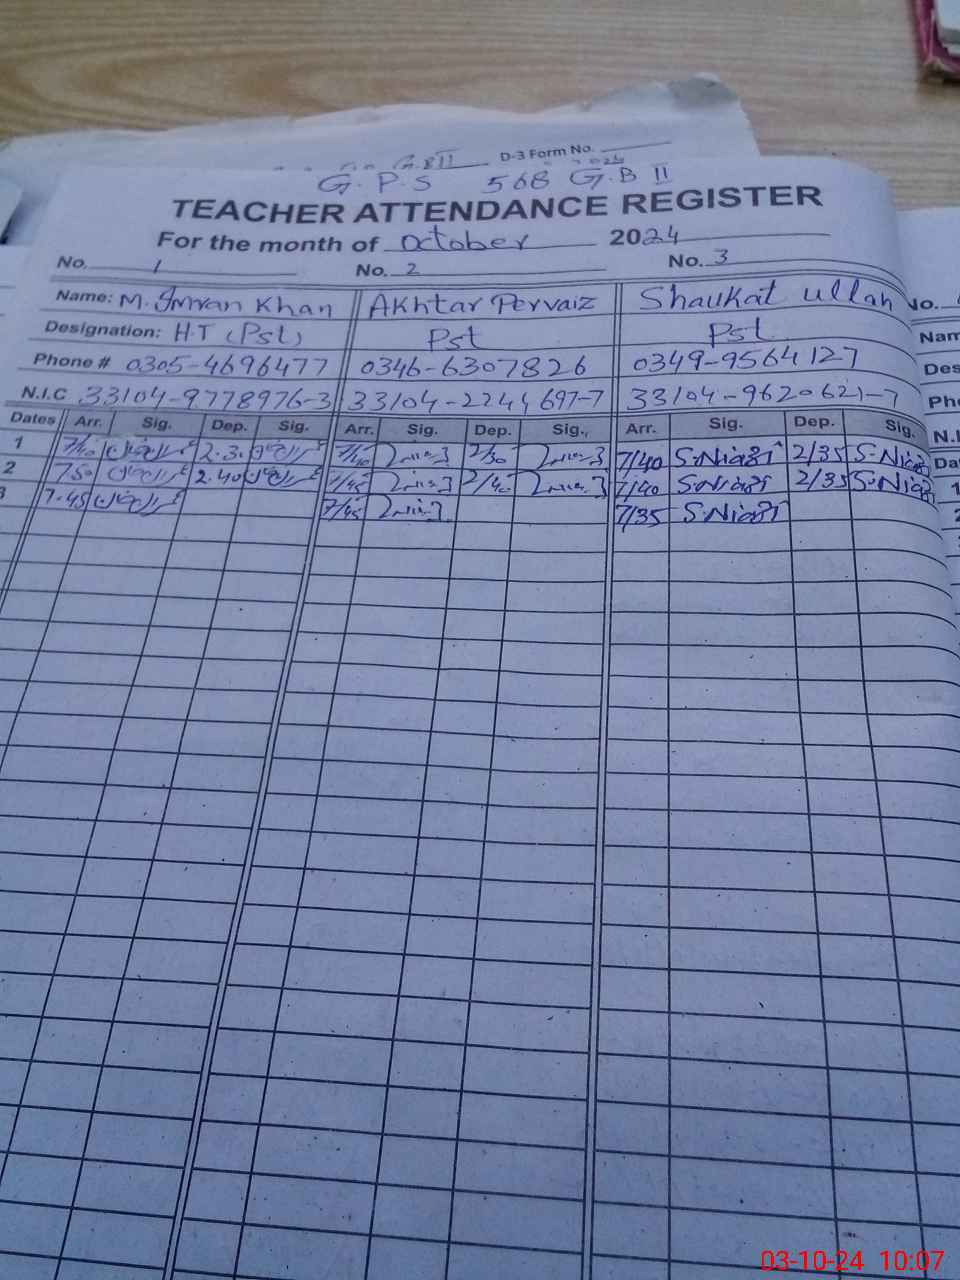 D-3 Form No.
G.P.S 568 G.B II
TEACHER ATTENDANCE REGISTER
For the month of October 2024
No. 1 No. 2 No. 3
Name: M. Imran Khan Akhtar Pervaiz Shaukat ullah
Designation: H.T (Pst) Pst Pst
Phone # 0305-4696477 0346-6307826 0349-9564127
N.I.C 33104-9778976-3 33104-2241697-7 33104-9620621-7
Dates Arr. Sig. Dep. Sig. Arr. Sig. Dep. Sig. Arr. Sig. Dep. Sig.
1 7/40 2.30 7/40 2/30 7/40 S.Niazi 2/35 S.Niazi
2 7.50 2.40 7/45 2/40 7/40 S.Niazi 2/35 S.Niazi
3 7.45 7/45 7/35 S.Niazi
No.
N.I
03-10-24 10:07